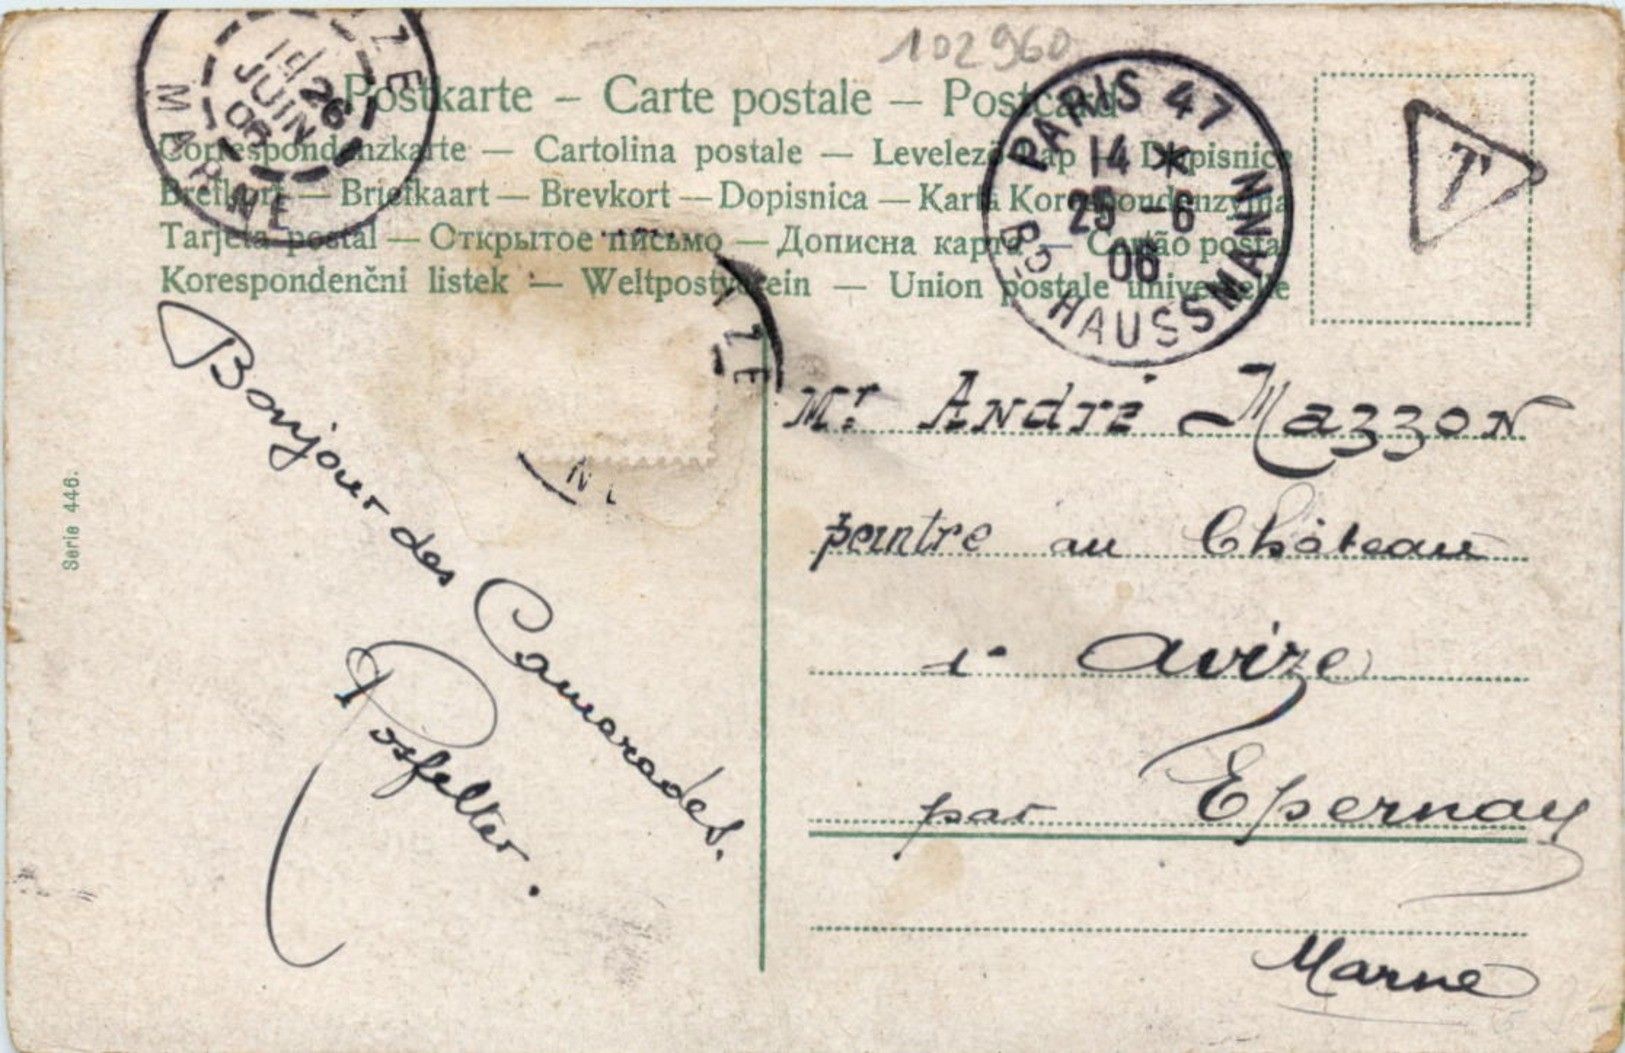 102960
Postkarte – Carte postale – Postcard
Correspondenzkarte — Cartolina postale — Levelező lap — Dopisnice
Brefkort — Briefkaart — Brevkort — Dopisnica — Karta Korespondenzyjna
Tarjeta postal — Открытое письмо — Дописна карта — Cartão postal
Korespondenční listek — Weltpostverein — Union postale universelle
ZE
19
JUIN 26
06
MARNE
PARIS 47
14 *
25 -6
06
BD HAUSSMANN
T
IZE
NE
Serie 446.
Bonjour des Camarades.
Posfelter.
Mr André Mazzon
peintre au Château
d' Avize
par Epernay
Marne